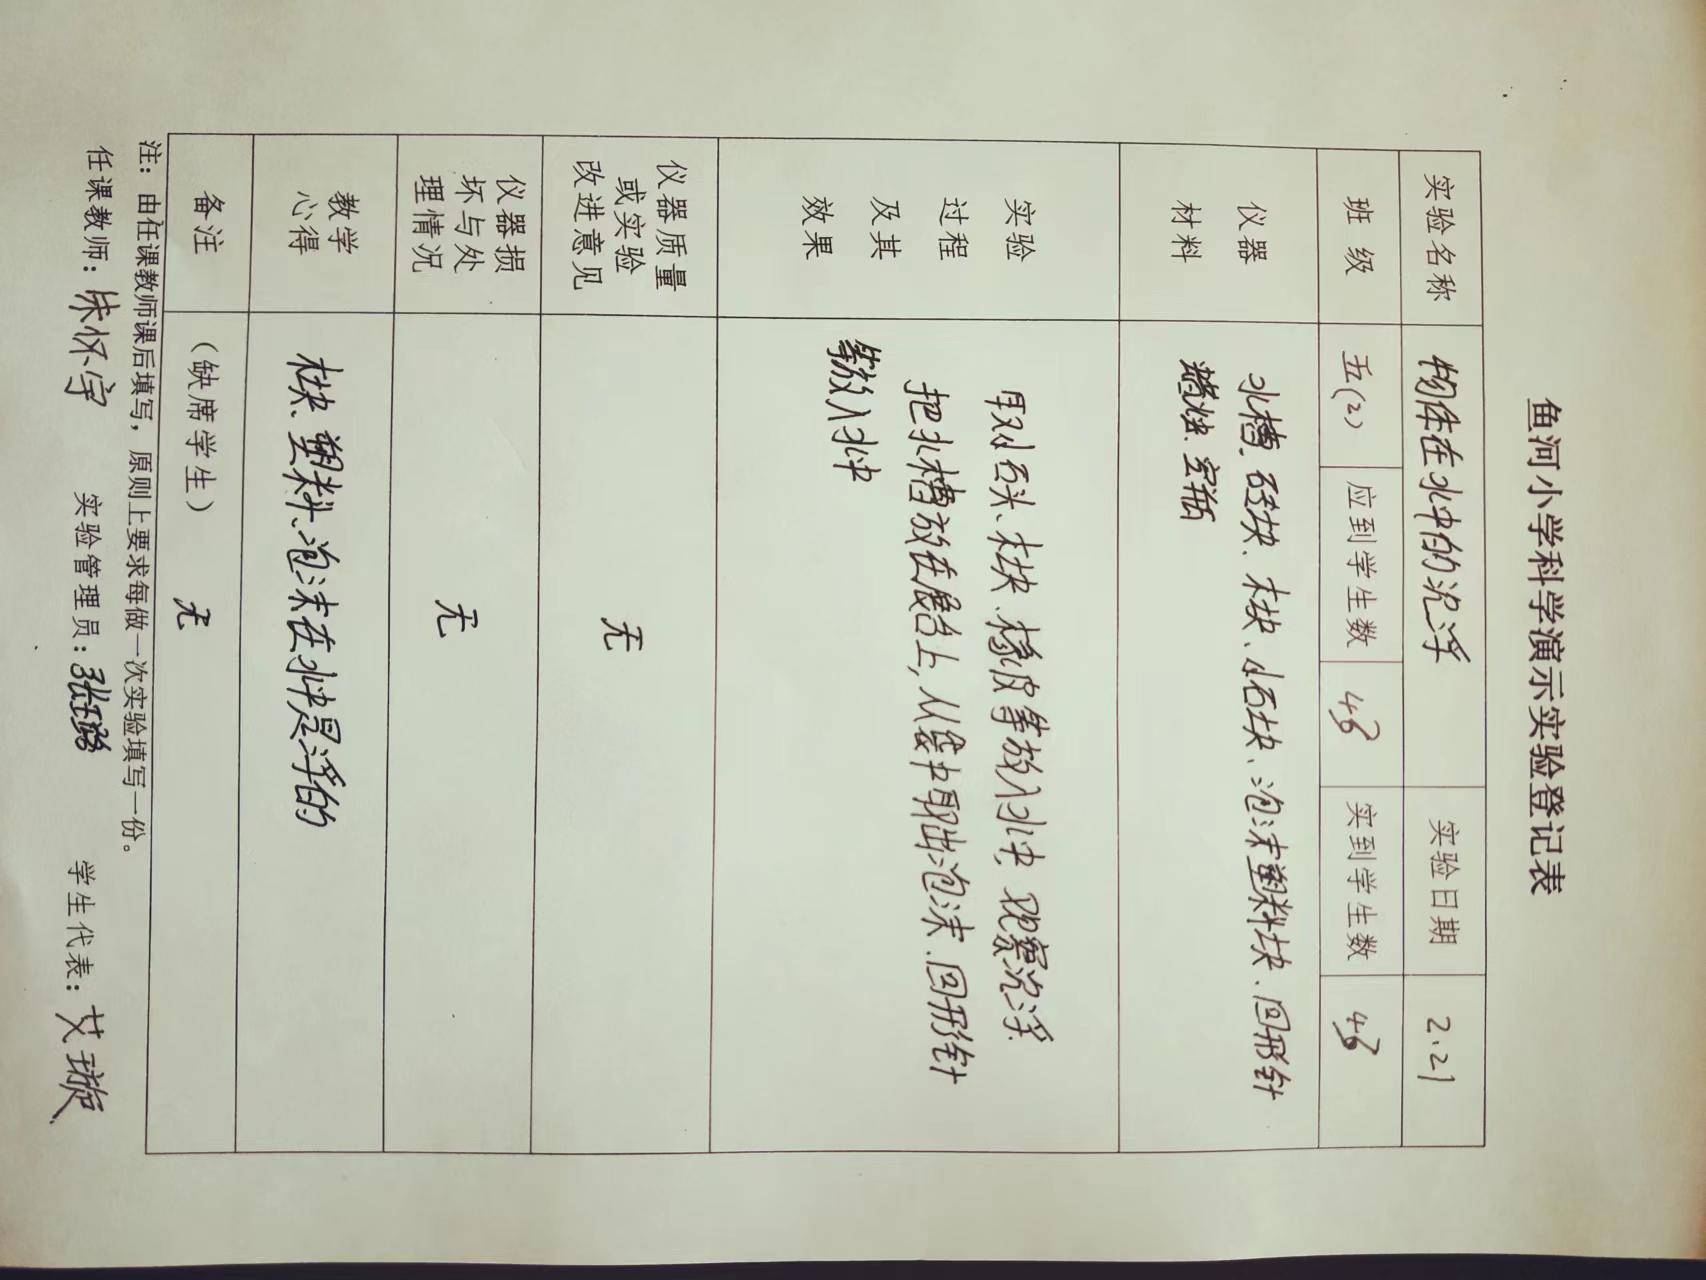 鱼河小学科学演示实验登记表
实验名称 物体在水中的沉浮 实验日期 2.21
班 级 五(2) 应到学生数 43 实到学生数 43
仪器 水槽、砖块、木块、小石块、泡沫塑料块、回形针
材料 蜡烛、空瓶
实验 取小石头、木块、橡皮等放入水中,观察沉浮.
过程 把水槽放在展台上,从袋中取出泡沫、回形针
及其 等放入水中
效果
仪器质量
或实验 无
改进意见
仪器损
坏与处 无
理情况
教学 木块、塑料、泡沫在水中是浮的
心得
备注 (缺席学生) 无
注:由任课教师课后填写,原则上要求每做一次实验填写一份。
任课教师:朱怀宇 实验管理员:张 学生代表:艾璇